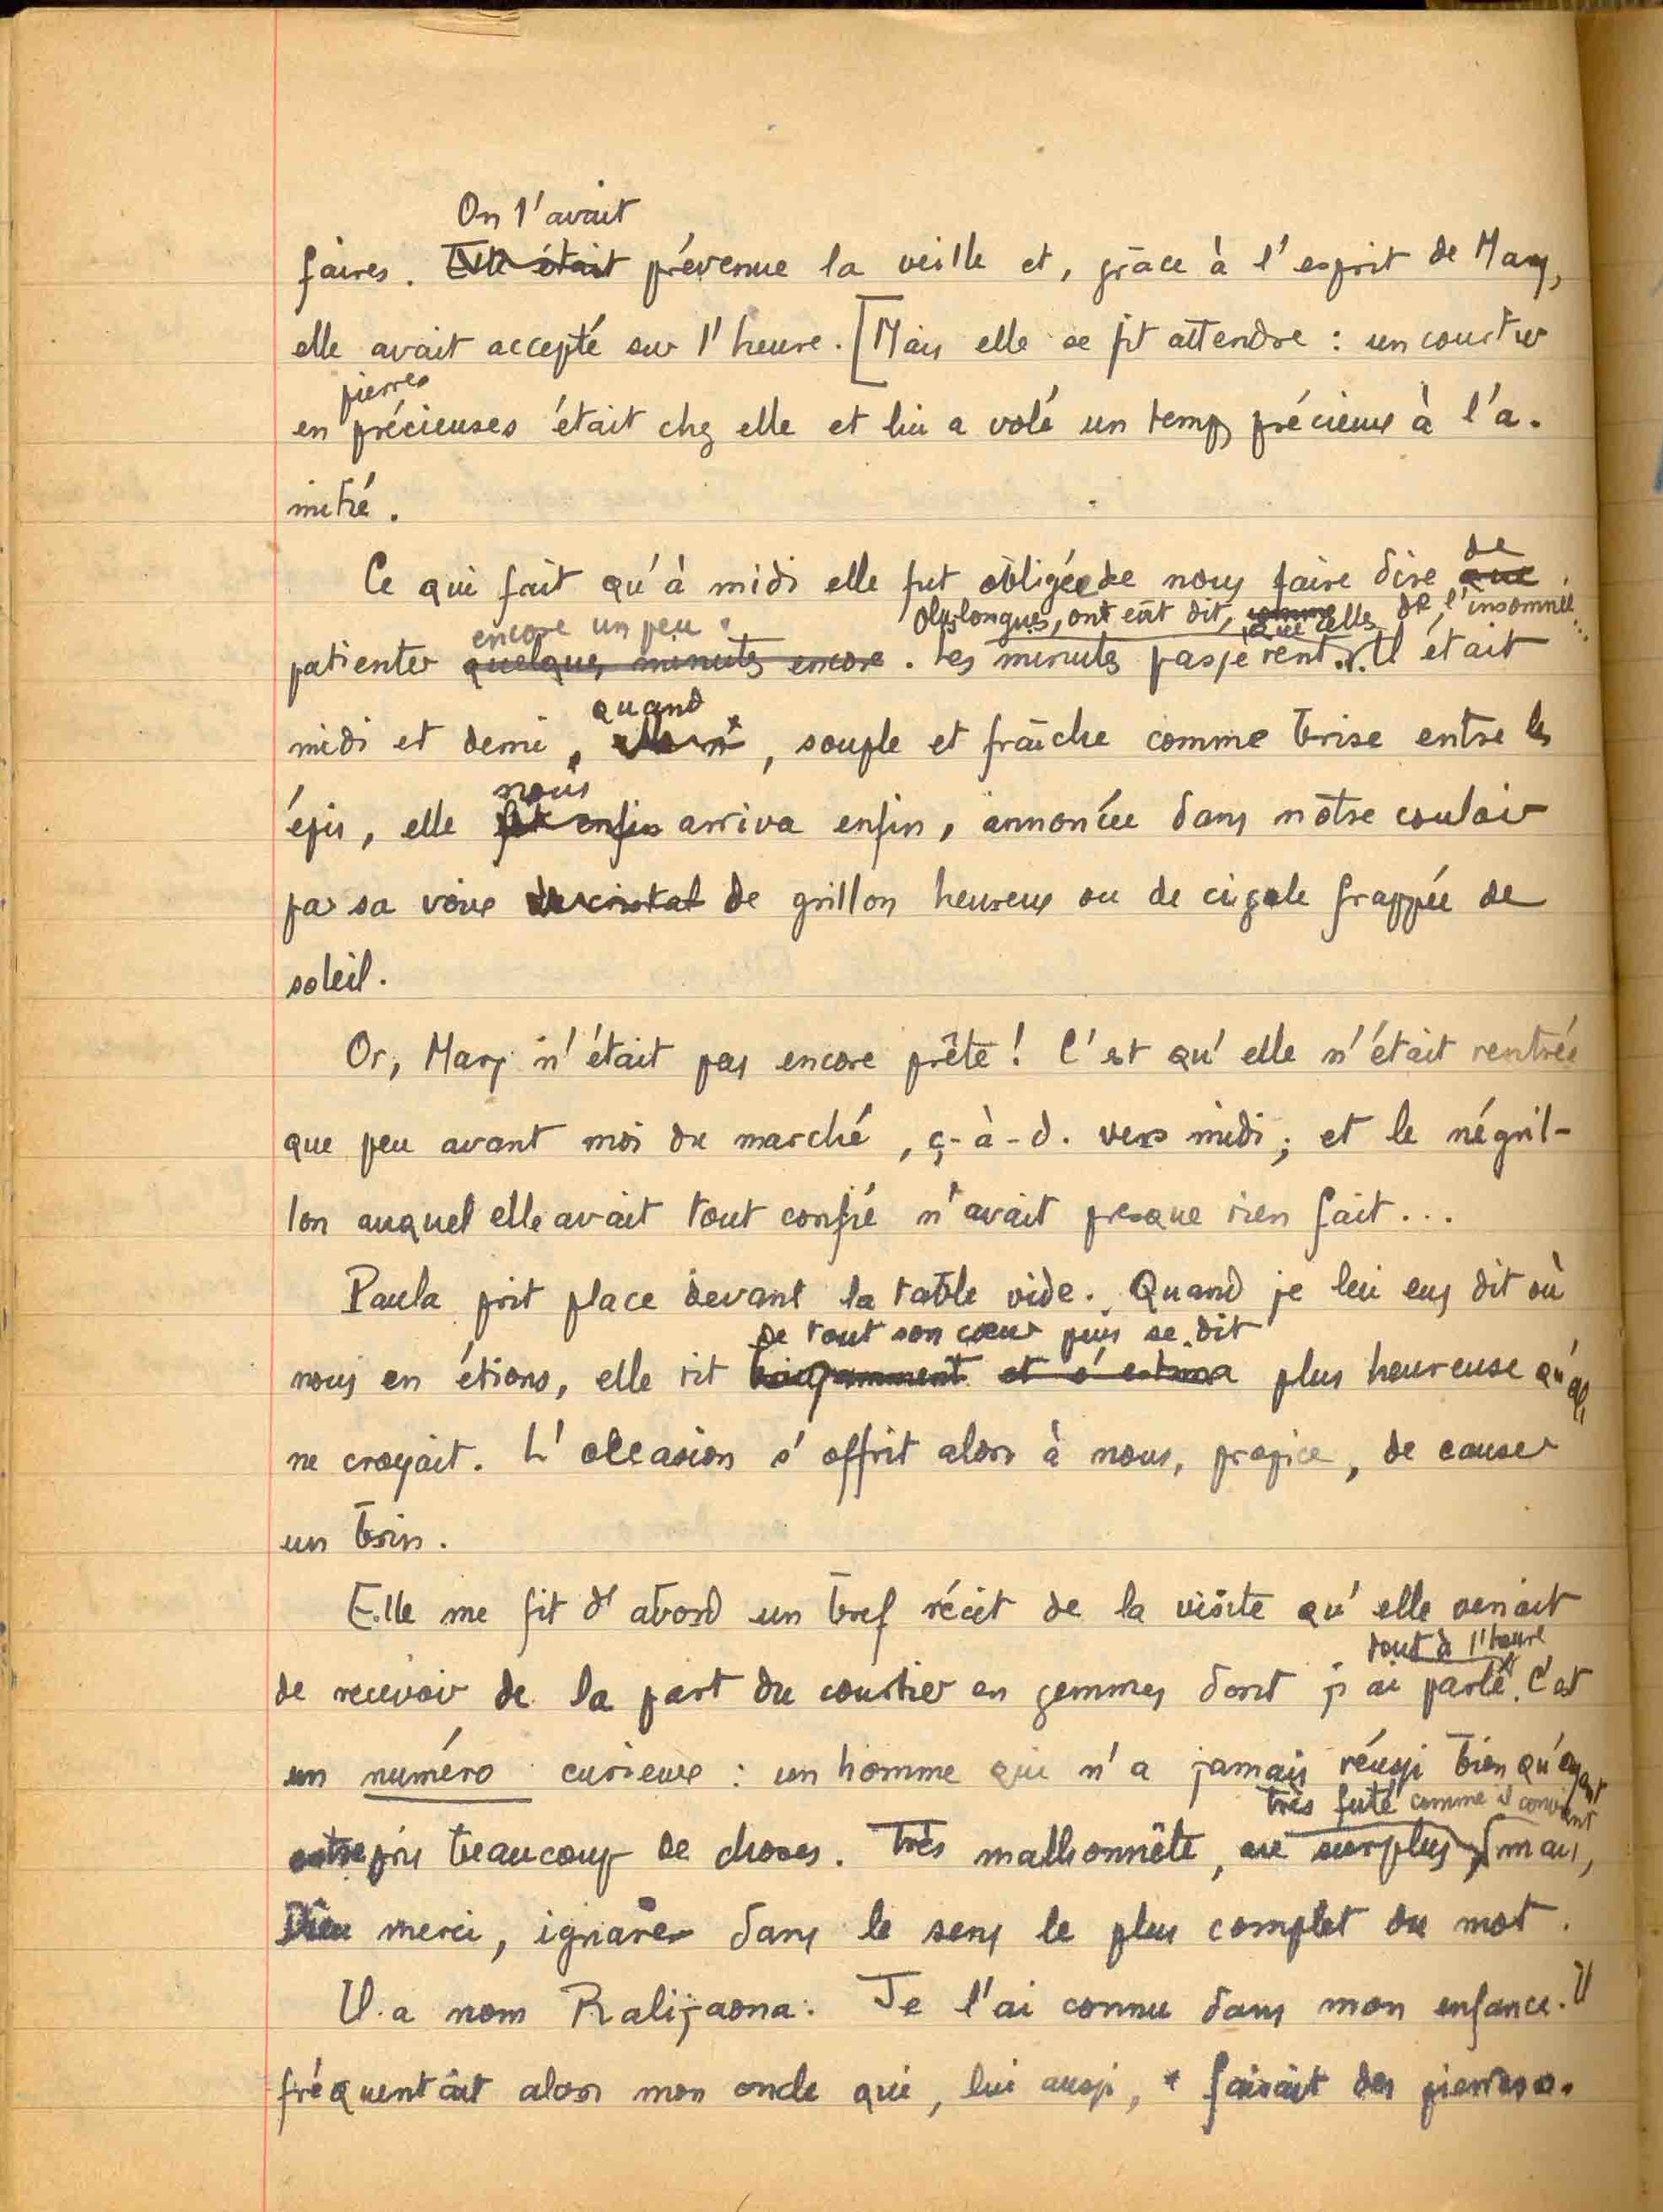 On l'avait
faires. Elle était prévenue la veille et, grâce à l'esprit de Mary,
elle avait accepté sur l'heure. [Mais elle se fit attendre : un courtier
pierres
en précieuses était chez elle et lui a volé un temps précieux à l'a-
mitié.
de
Ce qui fait qu'à midi elle fut obligée de nous faire dire que
plus longues, ont eût dit, comme que celles de l'insomnie...
encore un peu.
patienter quelques minutes encore. Les minutes passèrent... Il était
quand
midi et demi, , souple et fraîche comme brise entre les
nous
épis, elle fut enfin arriva enfin, annoncée dans notre couloir
par sa voix de cristal de grillon heureux ou de cigale frappée de
soleil.
Or, Mary n'était pas encore prête! C'est qu'elle n'était rentrée
que peu avant moi du marché, ç-à-d. vers midi; et le négril-
lon auquel elle avait tout confié n'avait presque rien fait...
Paula prit place devant la table vide. Quand je lui eus dit où
de tout son cœur puis se dit
nous en étions, elle rit et s'estima plus heureuse qu'on
ne croyait. L'occasion s'offrit alors à nous, propice, de causer
un brin.
Elle me fit d'abord un bref récit de la visite qu'elle venait
tout à l'heure
de recevoir de la part du courtier en gemmes dont j'ai parlé. C'est
un numéro curieux : un homme qui n'a jamais réussi bien qu'ayant
très futé comme il convient
entrepris beaucoup de choses. Très malhonnête, au surplus, mais,
Dieu merci, ignare dans le sens le plus complet du mot.
Il a nom Ralijaona. Je l'ai connu dans mon enfance. Il
fréquentait alors mon oncle qui, lui aussi, faisait des pierres.